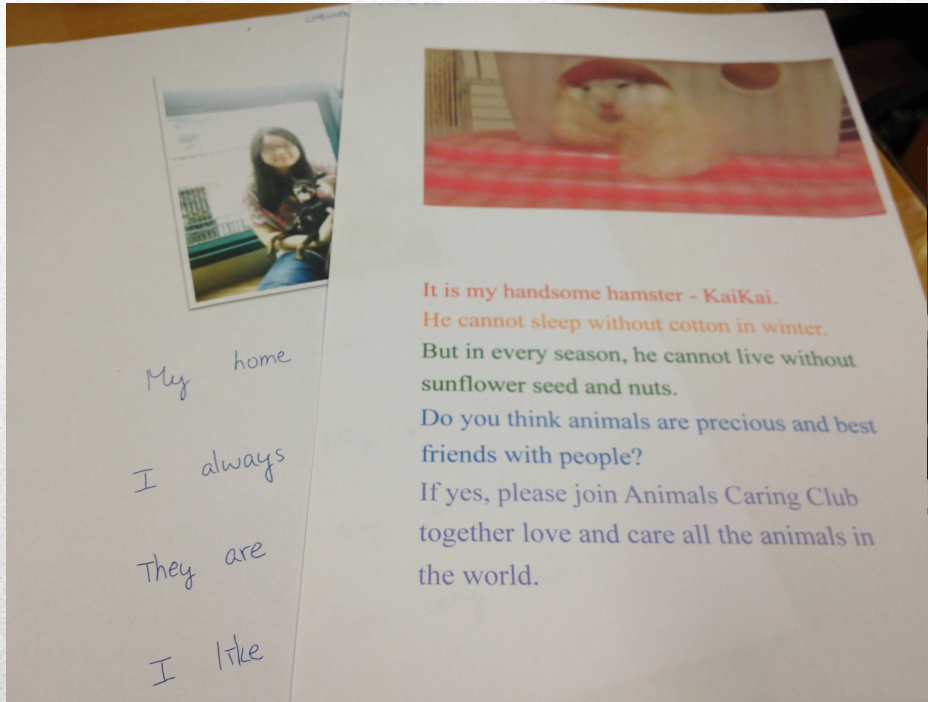 My home
I always
They are
I like
It is my handsome hamster - KaiKai.
He cannot sleep without cotton in winter.
But in every season, he cannot live without
sunflower seed and nuts.
Do you think animals are precious and best
friends with people?
If yes, please join Animals Caring Club
together love and care all the animals in
the world.